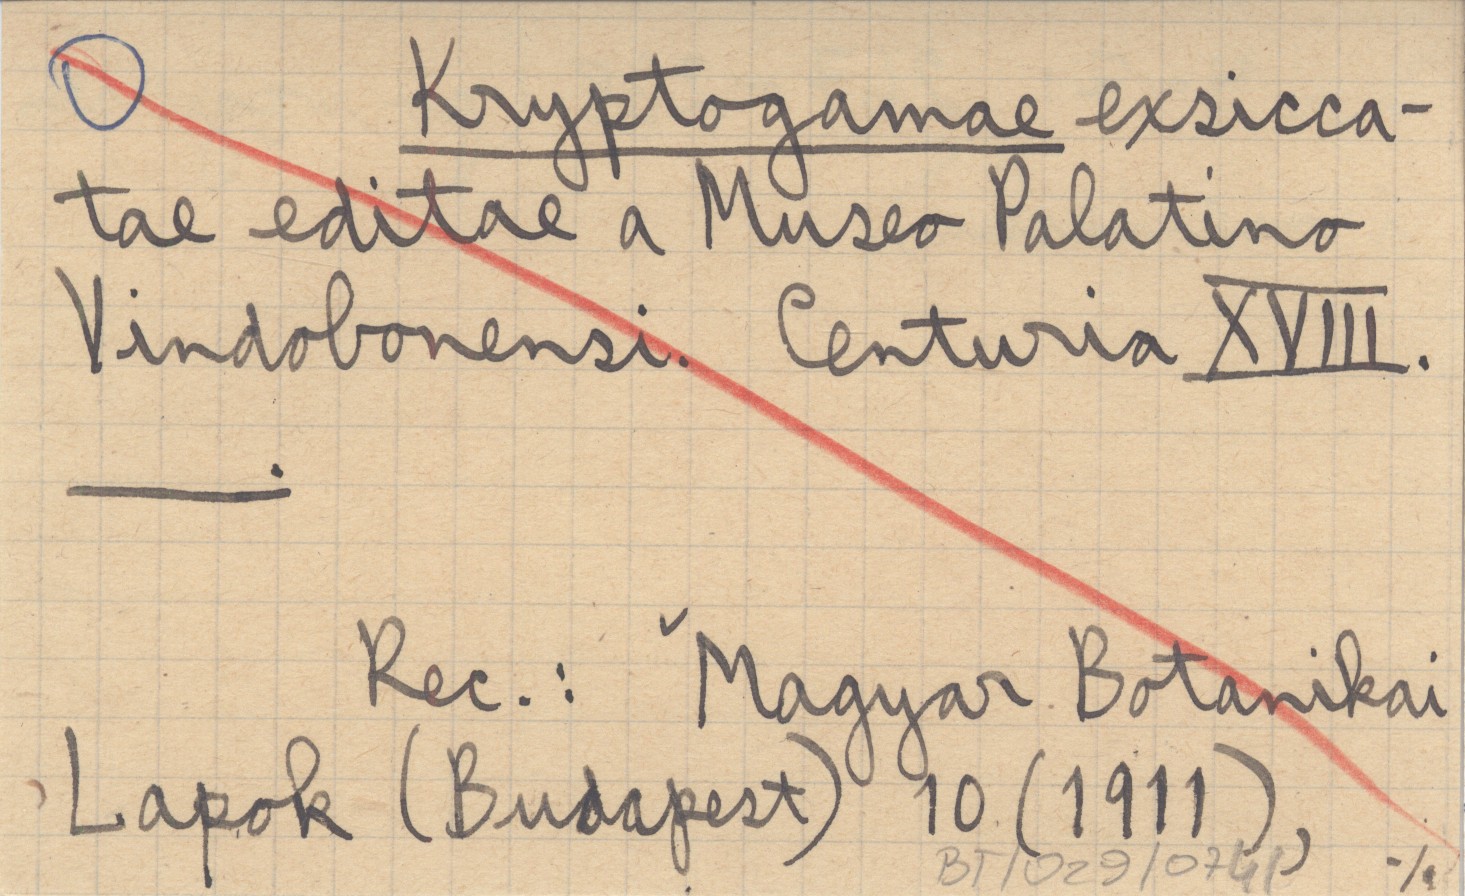 Kryptogamae exsicca-
tae editae a Museo Palatino
Vindobonensi. Centuria XVIII.
—.
Rec.: Magyar Botanikai
Lapok (Budapest) 10 (1911),
-/.